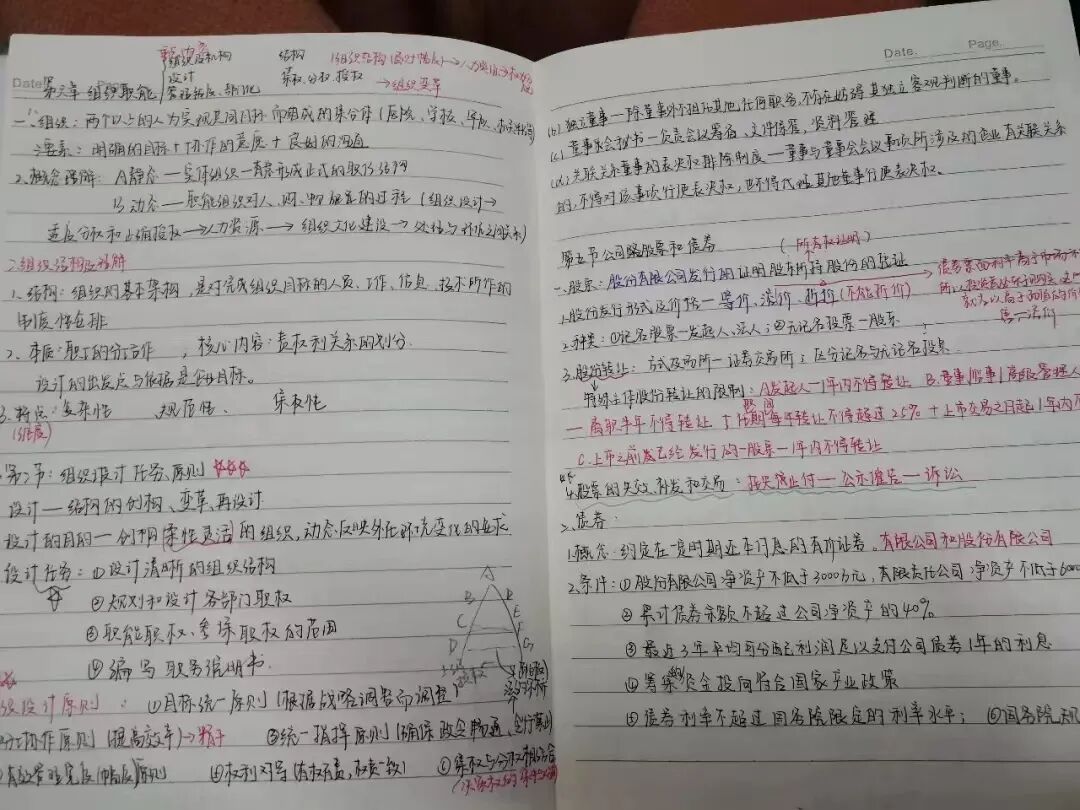 Date.
第六章 组织职能
设计
结构
集权、分权、授权
→组织变革
一、组织：两个以上的人为实现共同目标而组成的集合体(医院、学校、军队、
要素：明确的目标+协作的意愿+良好的沟通
2.概念理解：A静态—实体组织—
B动态—职能组织对人、财、物 的过程(组织设计→
适度分权和正确授权→人力资源→组织文化建设→
1.结构：组织的基本架构，是对完成组织目标的人员、工作、信息、技术所作的
制度性安排
2、本质：职工的分工合作，核心内容：责权利关系的划分
设计的出发点与依据是企业目标。
3.特点：复杂性 规范性、 集权性
第二节：组织设计任务、原则 ☆☆☆
设计—结构的创构、变革、再设计
设计的目的—创构柔性灵活的组织，动态反映外在环境变化的要求
设计任务：①设计清晰的组织结构
②规划和设计各部门职权
③职能职权、参谋职权的范围
④编写职务说明书.
A
B
C
D
E
F
G
设计原则：①目标统一原则(根据战略调整而调整)
分工协作原则(提高效率)→精干 ③统一指挥原则(确保政令畅通，
有效管理宽度(幅度)原则 ④权利对等(有权有责，权责一致) ⑤集权与分权相结合
Date. Page.
(b)独立董事—除董事外不担任其他任何职务，不存在妨碍其独立客观判断的董事。
(c)董事会秘书—负责会议筹备、文件保管，资料管理
(d)关联关系董事的表决权排除制度—董事与董事会会议事项所涉及的企业有关联关系
的，不得对该事项行使表决权，也不得代理其他董事行使表决权。
第五节 公司 股票和债券 (所有权证明)
一.股票：股份有限公司发行的证明股东所持股份的凭证
1.股份发行形式及价格—等价、溢价、折价(不能折价)
2.种类：①记名股票—发起人、法人；②无记名股票—股东.
3.股份转让：方式及场所—证券交易所；区分记名与无记名股票
特殊主体股份转让的限制：A发起人—1年内不得转让 B.董事|监事|高级管理人
—离职半年不得转让+任期期间每年转让不得超过25%+上市交易之日起1年内不
C.上市之前发已经发行的—股票—1年内不得转让
4.股票的失效、补发和交易：挂失停止付—公示催告—诉讼
二.债券.
1.概念：约定在一定时期还本付息的有价证券。有限公司和股份有限公司
2.条件：①股份有限公司净资产不低于3000万元，有限责任公司净资产不低于6000
②累计债券余额不超过公司净资产的40%
③最近3年平均可分配利润足以支付公司债券1年的利息
④筹集的资金投向符合国家产业政策
⑤债券利率不超过国务院限定的利率水平；⑥国务院规